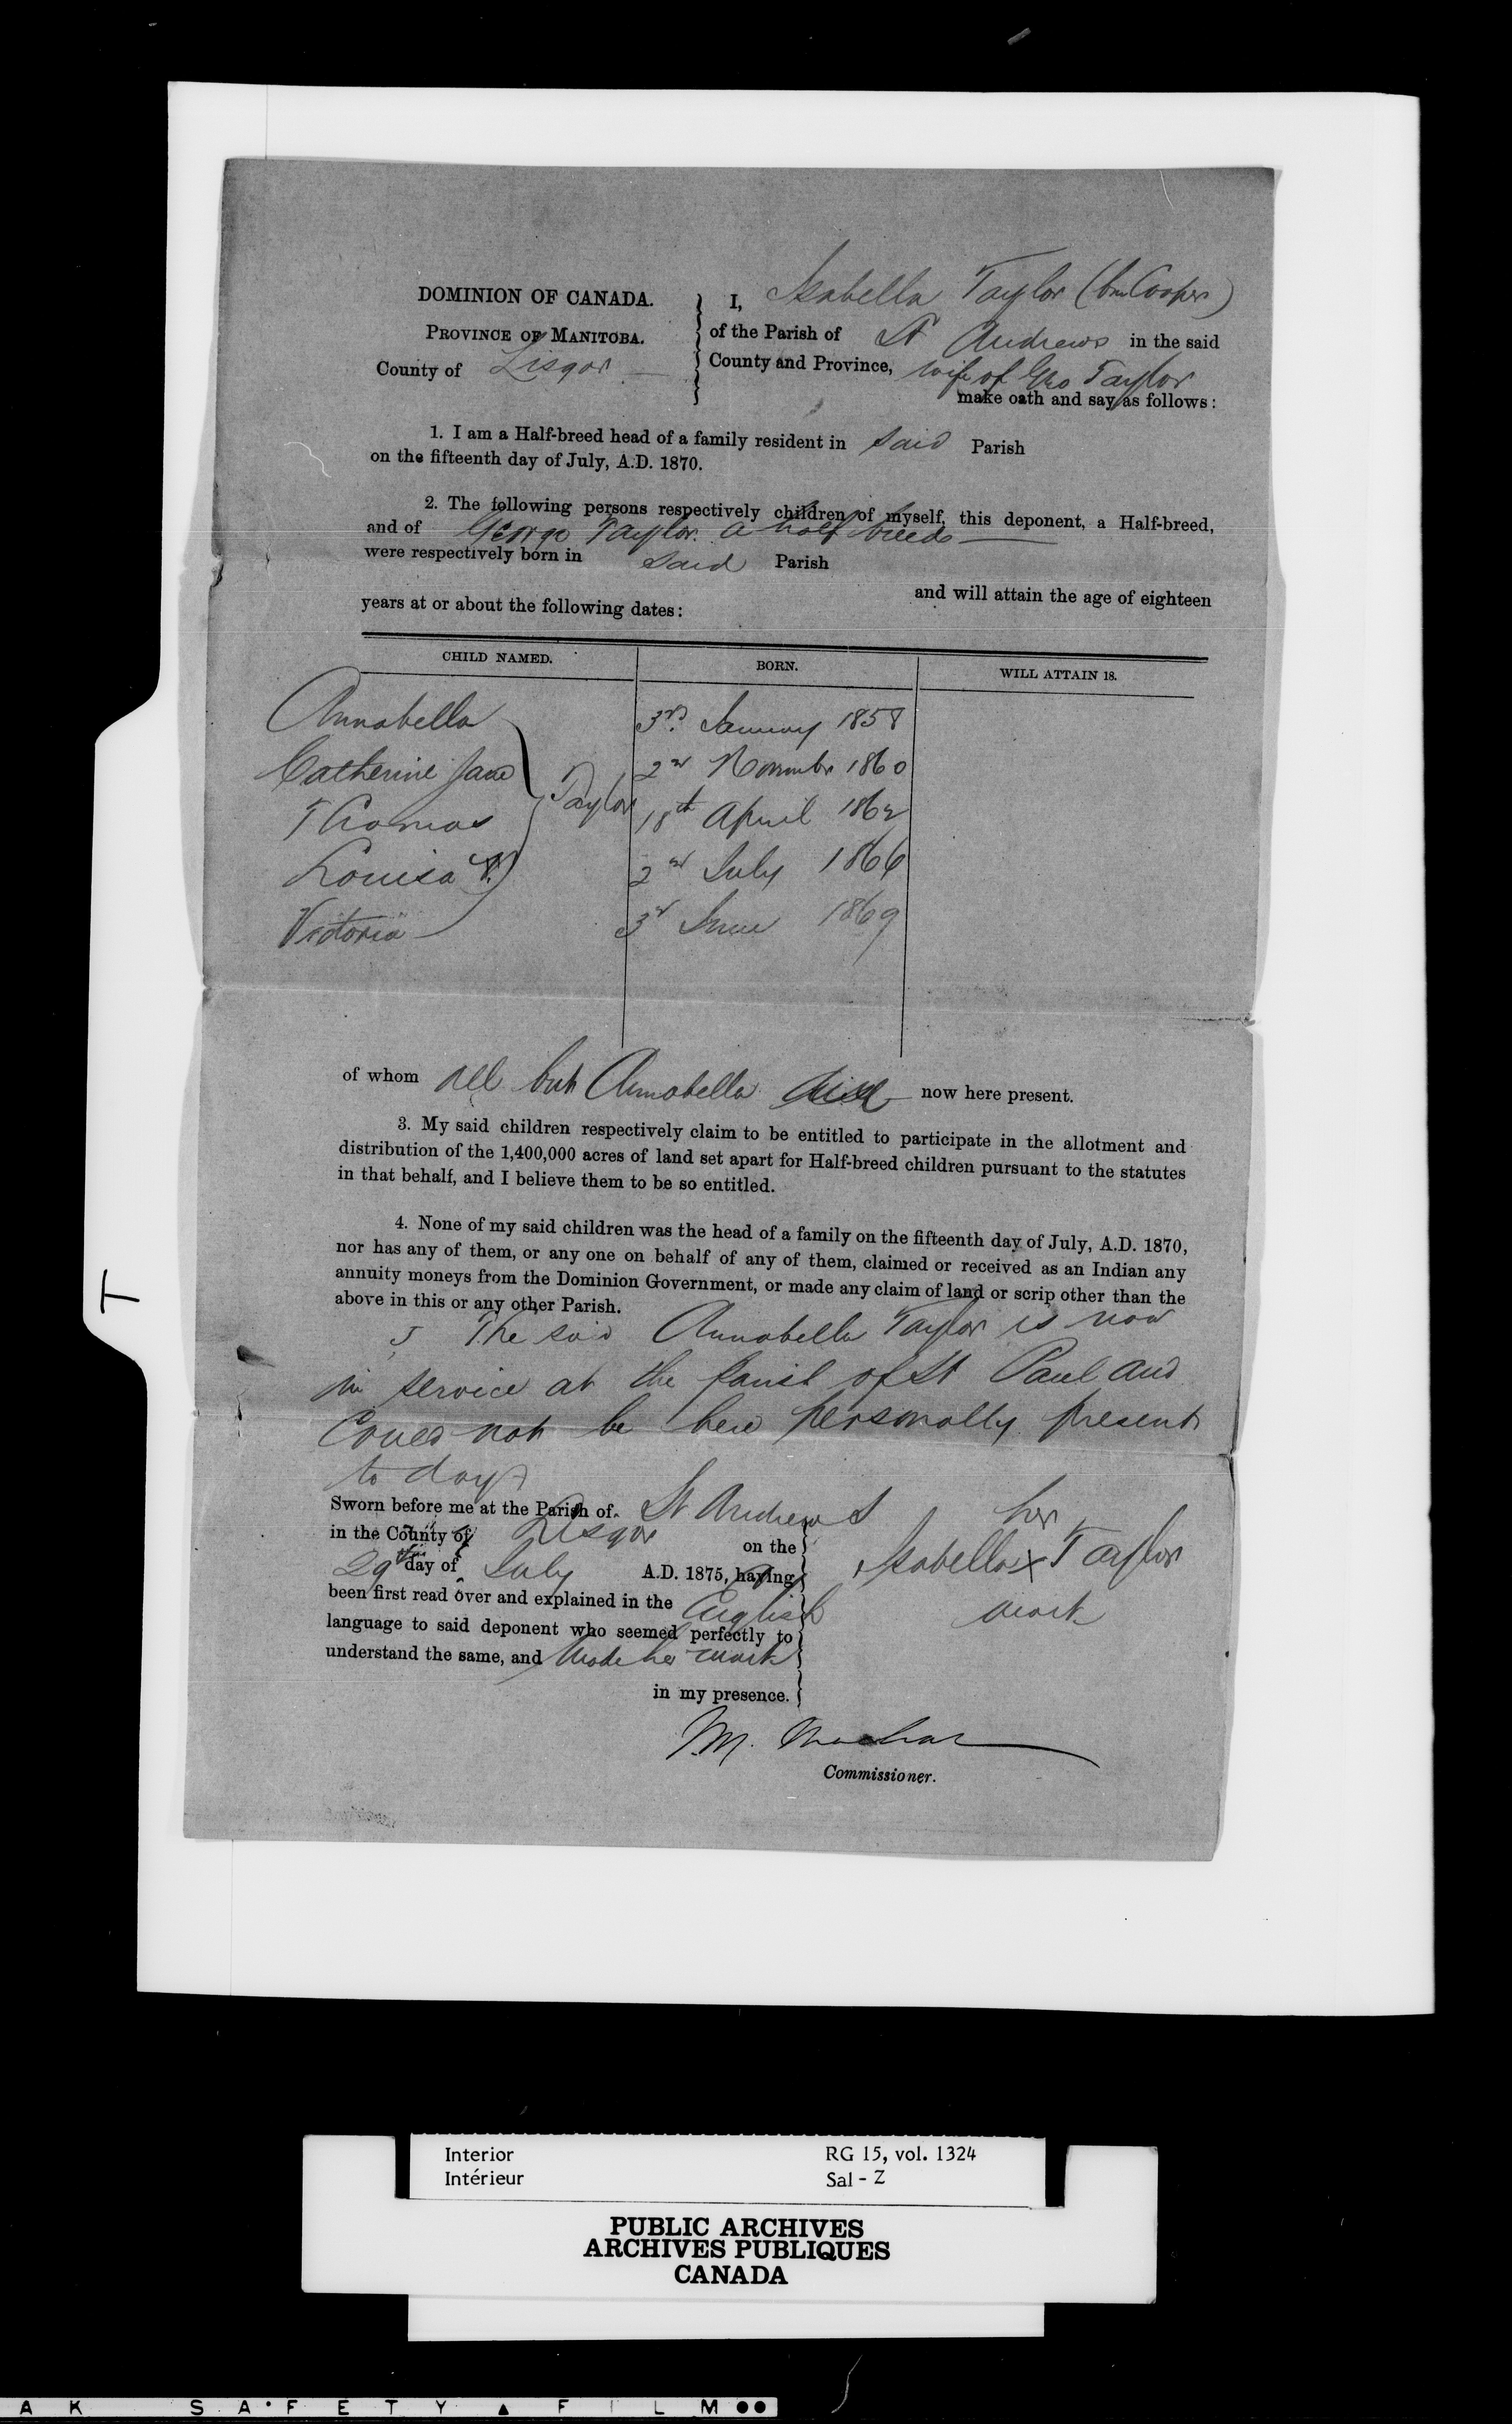 DOMINION OF CANADA.
PROVINCE OF MANITOBA.
County of Lisgar
I, Isabella Taylor (bn Cooper)
of the Parish of St Andrews in the said
County and Province, wife of Geo Taylor
make oath and say as follows:
1. I am a Half-breed head of a family resident in said Parish
on the fifteenth day of July, A.D. 1870.
2. The following persons respectively children of myself, this deponent, a Half-breed,
and of George Taylor a half breed
were respectively born in said Parish
and will attain the age of eighteen
years at or about the following dates:
CHILD NAMED. BORN. WILL ATTAIN 18.
Annabella 3rd January 1858
Catherine Jane 2nd Novembr 1860
Taylor
Thomas 18th April 1862
Louisa V. 2nd July 1866
Victoria 3d June 1869
of whom all but Annabella now here present.
3. My said children respectively claim to be entitled to participate in the allotment and
distribution of the 1,400,000 acres of land set apart for Half-breed children pursuant to the statutes
in that behalf, and I believe them to be so entitled.
4. None of my said children was the head of a family on the fifteenth day of July, A.D. 1870,
nor has any of them, or any one on behalf of any of them, claimed or received as an Indian any
annuity moneys from the Dominion Government, or made any claim of land or scrip other than the
above in this or any other Parish.
5 The said Annabella Taylor is now
in service at the parish of St Paul and
could not be here personally present
to day
Sworn before me at the Parish of St Andrews
in the County of Lisgar on the
29th day of July A.D. 1875, having
been first read over and explained in the English
language to said deponent who seemed perfectly to
understand the same, and made her mark
in my presence.
her
Isabella x Taylor
mark
J.M. Machar
Commissioner.
T
Interior RG 15, vol. 1324
Intérieur Sal - Z
PUBLIC ARCHIVES
ARCHIVES PUBLIQUES
CANADA
A K SA•FETY ▲ FILM ●●